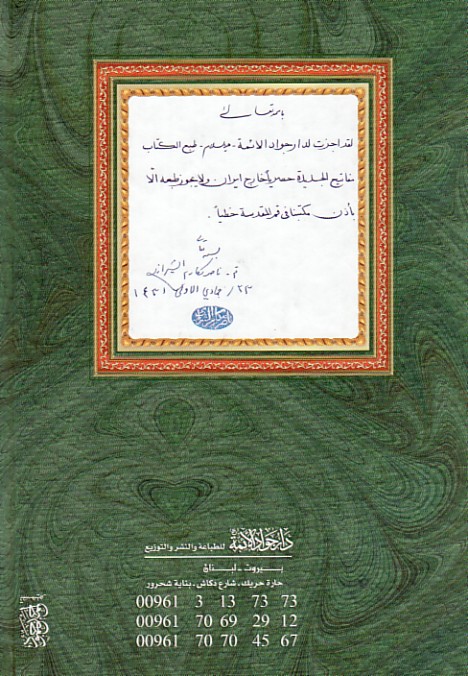 باسمه تعالى
لقد اجزت لدار جواد الائمة - طبع الكتاب
مفاتيح الجديدة حصرياً خارج ايران ولا يجوز طبعه الّا
بأذن مكتبنا في قم المقدسة خطياً.
قم - ناصر مكارم الشيرازي
٢٣ / جمادي الاولى ١٤٣١
دار جواد الأئمة للطباعة والنشر والتوزيع
بيروت - لبنان
حارة حريك، شارع دكاش، بناية شحرور
00961 3 13 73 73
00961 70 69 29 12
00961 70 70 45 67